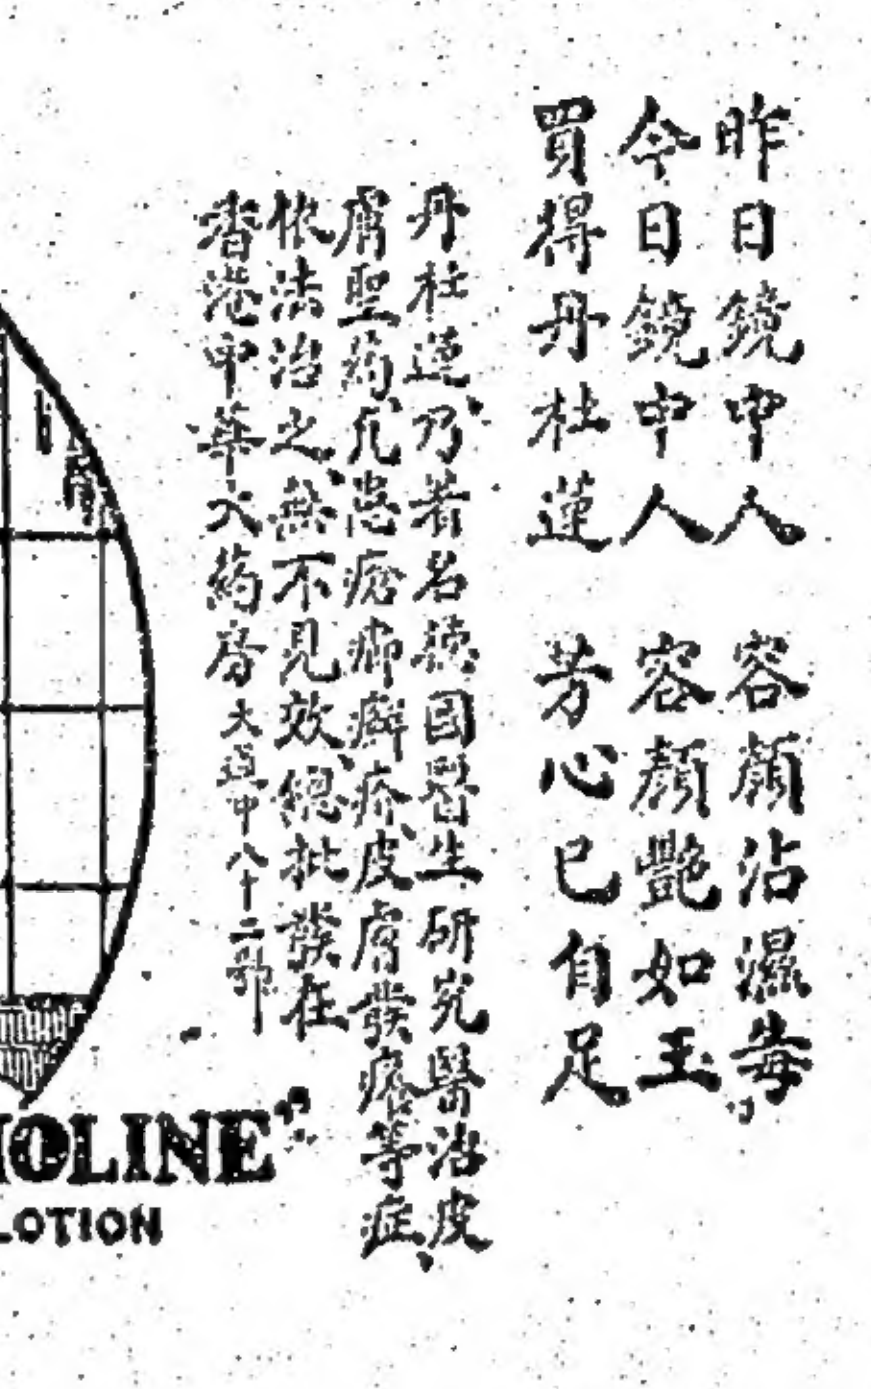 昨日鏡中人。容顏沾濕毒。
今日鏡中人 容顏艷如玉
買得丹杜蓮 芳心已自足
丹杜蓮乃著名德國醫生研究醫治皮
膚聖药、凡患瘡癤癬疥、皮膚發癢等症、
依法治之、無不見效、總批發在
香港中華大药房大道中八十二號
OLINE"
LOTION